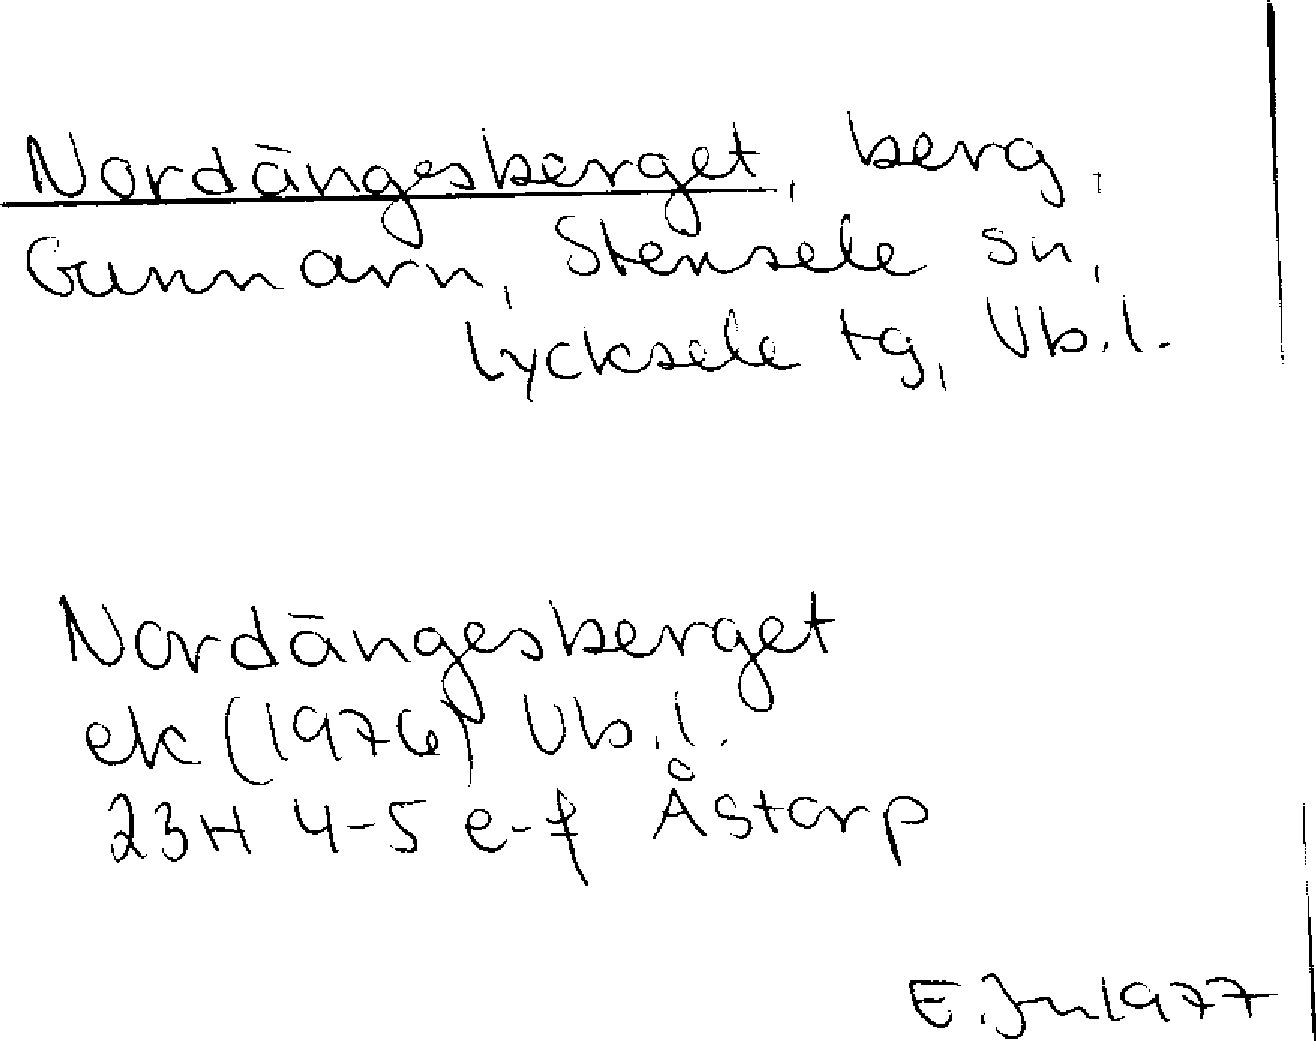 Nordängesberget, berg,
Gunnarn, Stensele sn,
Lycksele tg, Vb.l.
Nordängesberget
ek (1976) Vb.l.
23H 4-5 e-f Åstorp
E.Jn 1977